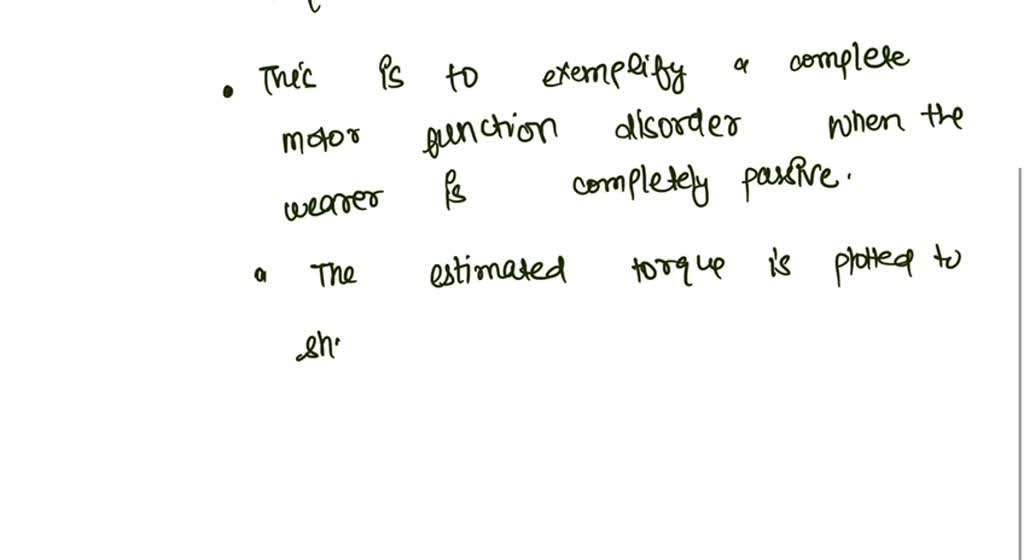 • This is to exemplify a complete
motor function disorder when the
wearer is completely passive.
• The estimated torque is plotted to
sh